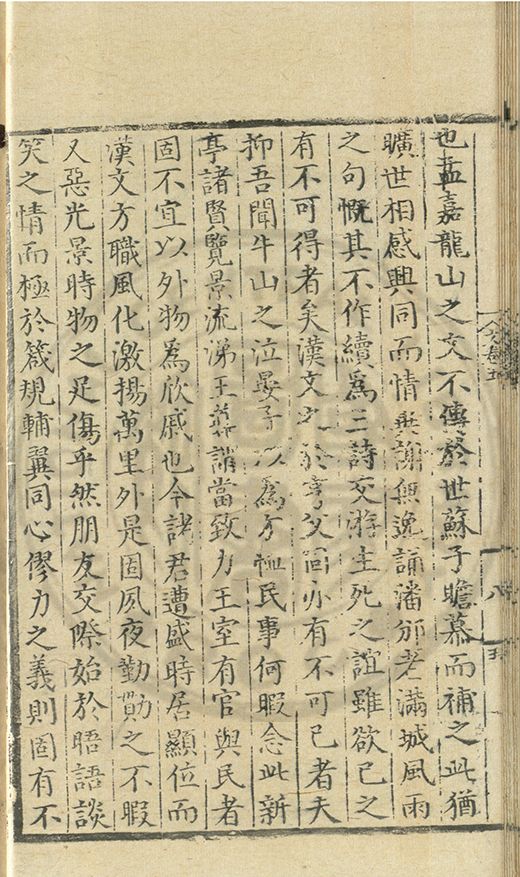 也孟嘉龍山之文不傳於世蘇子瞻慕而補之此猶
曠世相感興同而情謝無逸誦潘邠老滿城風雨
之句慨其不作續爲三詩交游生死之誼雖欲已之
有不可得者矣漢文之於亨父固亦有不可已者夫
抑吾聞牛山之泣晏子以爲恤民事何暇念此新
亭諸賢覽景流涕王導謂當致力王室有官與民者
固不宜以外物爲欣戚也今諸君遭盛時居顯位而
漢文方職風化激揚萬里外是固夙夜勤勩之不暇
又惡光景時物之足傷乎然朋友交際始於晤語談
笑之情而極於箴規輔翼同心僇力之義則固有不